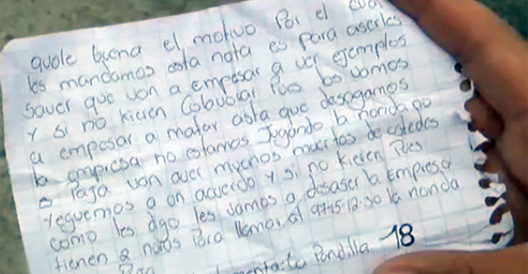 quole buena el motivo Por el cual
les mandamos esta nota es para aserles
Saver que van a empesar a ver ejemplos
y si no kieren Colavorar Pues los vamos
a empesar a matar asta que desogamos
la empresa no estamos Jugando la norida po
e Paja van aver muchos muertos de ustedes
yeguemos a un acuerdo y si no kieren Pues
como les dgo les vamos a desaser la Empresa
tienen 2 horas Para llamar al 9745-12-30 la norida
Para
Pandilla 18